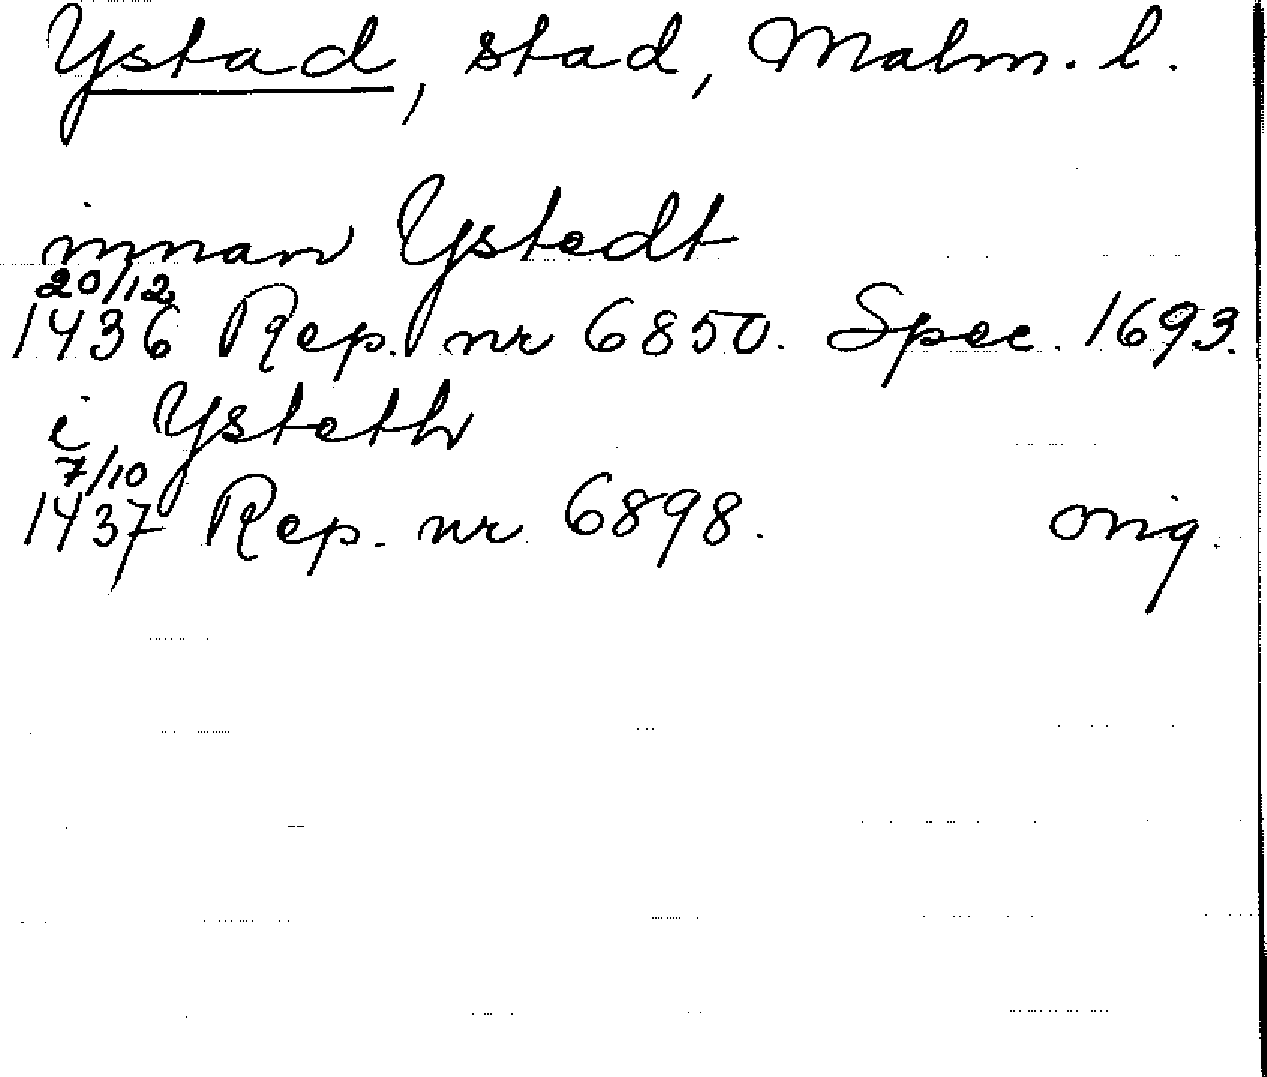 Ystad, stad, Malm. l.
innan Ystedt
20/12
1436 Rep. nr 6850. Spec. 1693.
i Ysteth
7/10
1437 Rep. nr 6898. orig.